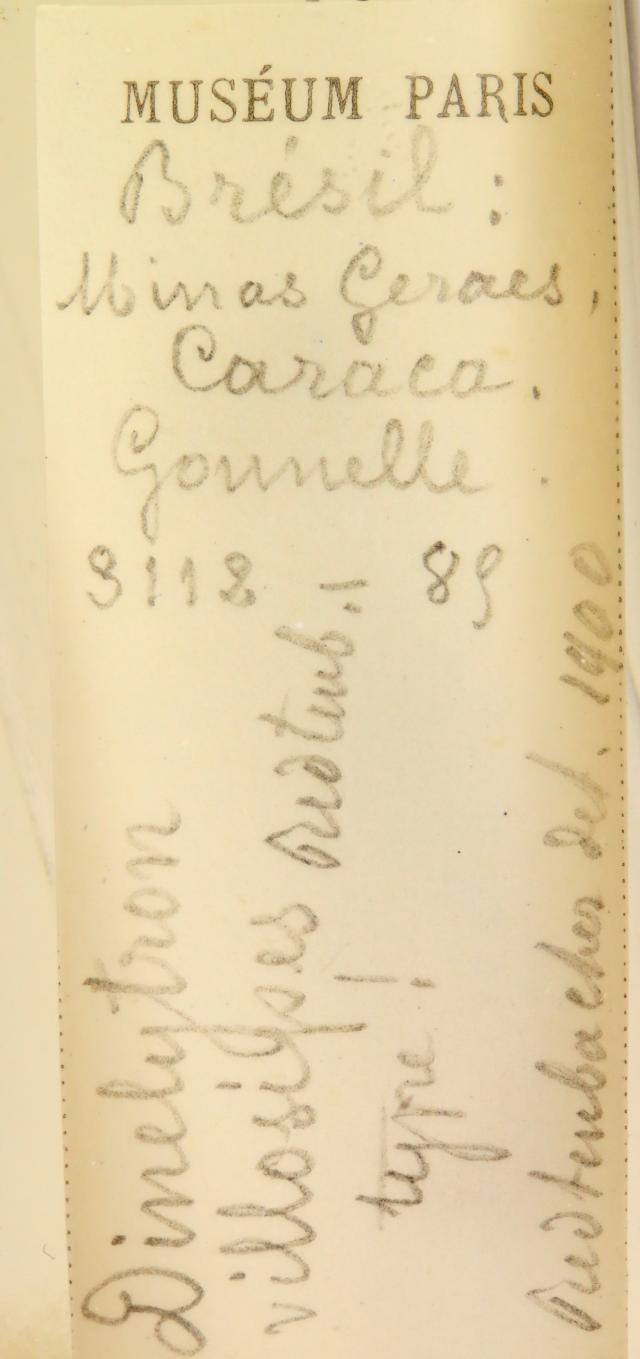 MUSÉUM PARIS
Brésil :
Minas Geraes,
Caraca.
Gounelle.
3112 - 89
Dinelytron
villosipes Redtenb. !
type !
Redtenbacher det. 1900